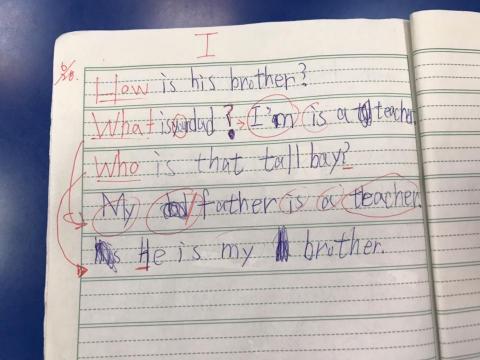 I
6/30.
How is his brother?
What is your dad? I'm is a teacher
Who is that tall bay?
My father is a teacher.
He is my brother.